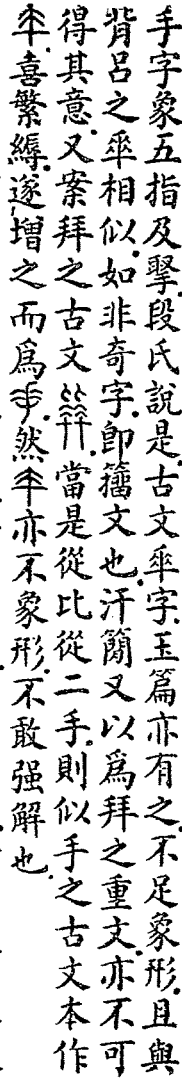 手字象五指及掔段氏說是古文𠦬字玉篇亦有之不足象形且與
背呂之𠦬相似如非奇字即籀文也汗簡又以爲拜之重文亦不可
得其意又案拜之古文當是從比從二手則似手之古文本作
喜繁縟遂增之而爲然亦不象形不敢强解也